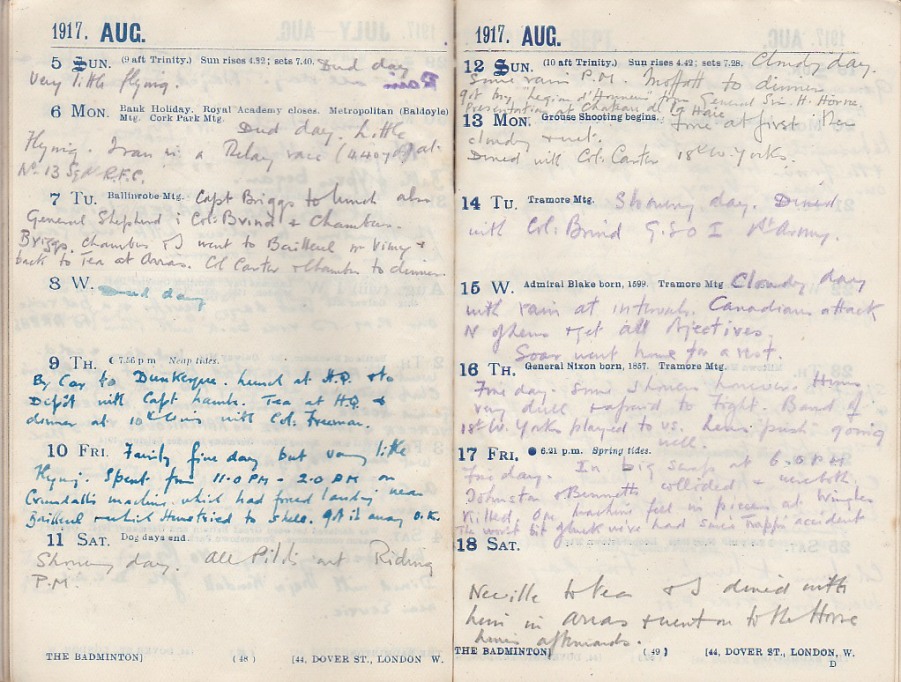 1917. AUG.
5 SUN. (9 aft Trinity.) Sun rises 4.32; sets 7.40. Dud day
Very little flying. Rain
6 MON. Bank Holiday. Royal Academy closes. Metropolitan (Baldoyle)
Mtg. Cork Park Mtg.
Dud day. Little
flying. I ran in a Relay race (440 yds) at
No 13 Sqn R.F.C.
7 TU. Ballinrobe Mtg. Capt Briggs to lunch also
General Shepherd & Col: Brind & Chambers.
Briggs, Chambers & I went to Bailleul nr Vimy &
back to Tea at Arras. Col Carter & Chambers to dinner.
8 W. Dud day
9 TH. ☾ 7.56 p m Neap tides.
By Car to Dunkerque. Lunch at H.Q. & to
Depôt with Capt Lambe. Tea at HQ &
dinner at 10 with Col: Freeman.
10 FRI. Fairly fine day but very little
flying. Spent from 11.0 PM - 2.0 PM on
Crundall's machine which had forced landing near
Bailleul & which Huns tried to shell. Got it away O.K.
11 SAT. Dog days end.
Showery day. All Pilots out Riding
P.M.
THE BADMINTON] (48) [44, DOVER ST., LONDON W.
1917. AUG.
12 SUN. (10 aft Trinity.) Sun rises 4.42; sets 7.28. Cloudy day.
Some rain P.M. Moffatt to dinner
got my Legion d'Honneur from General Sir H. Horne.
Presentation at Chateau de la Haie
13 MON. Grouse Shooting begins. Fine at first then
cloudy & wet.
Dined with Col: Carter 18th W. Yorks.
14 TU. Tramore Mtg. Stormy day. Dined
with Col: Brind G.S.O I Army.
15 W. Admiral Blake born, 1599. Tramore Mtg Cloudy day
with rain at intervals. Canadians attack
N of Lens & get all objectives.
Soar went home for a rest.
16 TH. General Nixon born, 1857. Tramore Mtg.
Fine day. Some showers however. Huns
very dull & afraid to fight. Band of
18th W. Yorks played to us. Lens "push" going
well.
17 FRI. ● 6.21 p.m. Spring tides.
Fine day. In big scrap at 6.0 PM
Johnston & Bennetts collided & were both
killed. One machine fell in pieces at Wingles
The worst bit of luck we've had since Trapp's accident
18 SAT.
Neville to tea & I dined with
him in Arras & went on to the Horse
lines afterwards.
THE BADMINTON] (49) [44, DOVER ST., LONDON, W.
D